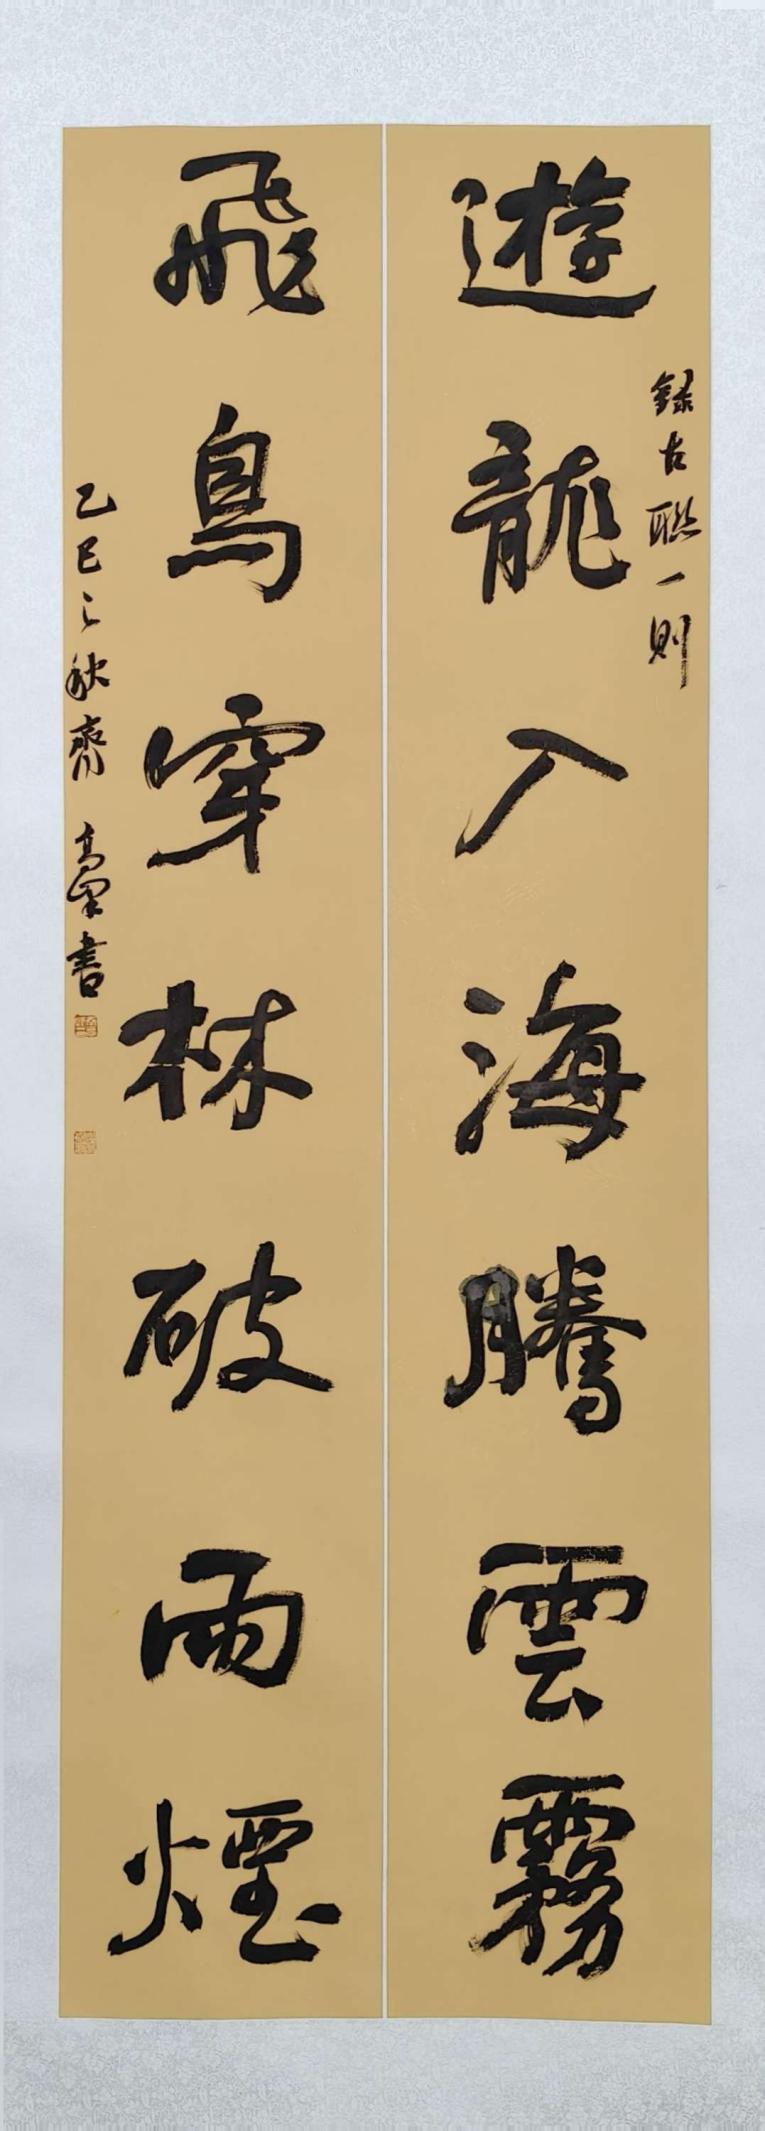 遊龍入海騰雲霧
録古聯一則
飛鳥穿林破雨煙
乙巳之秋齊高峯書